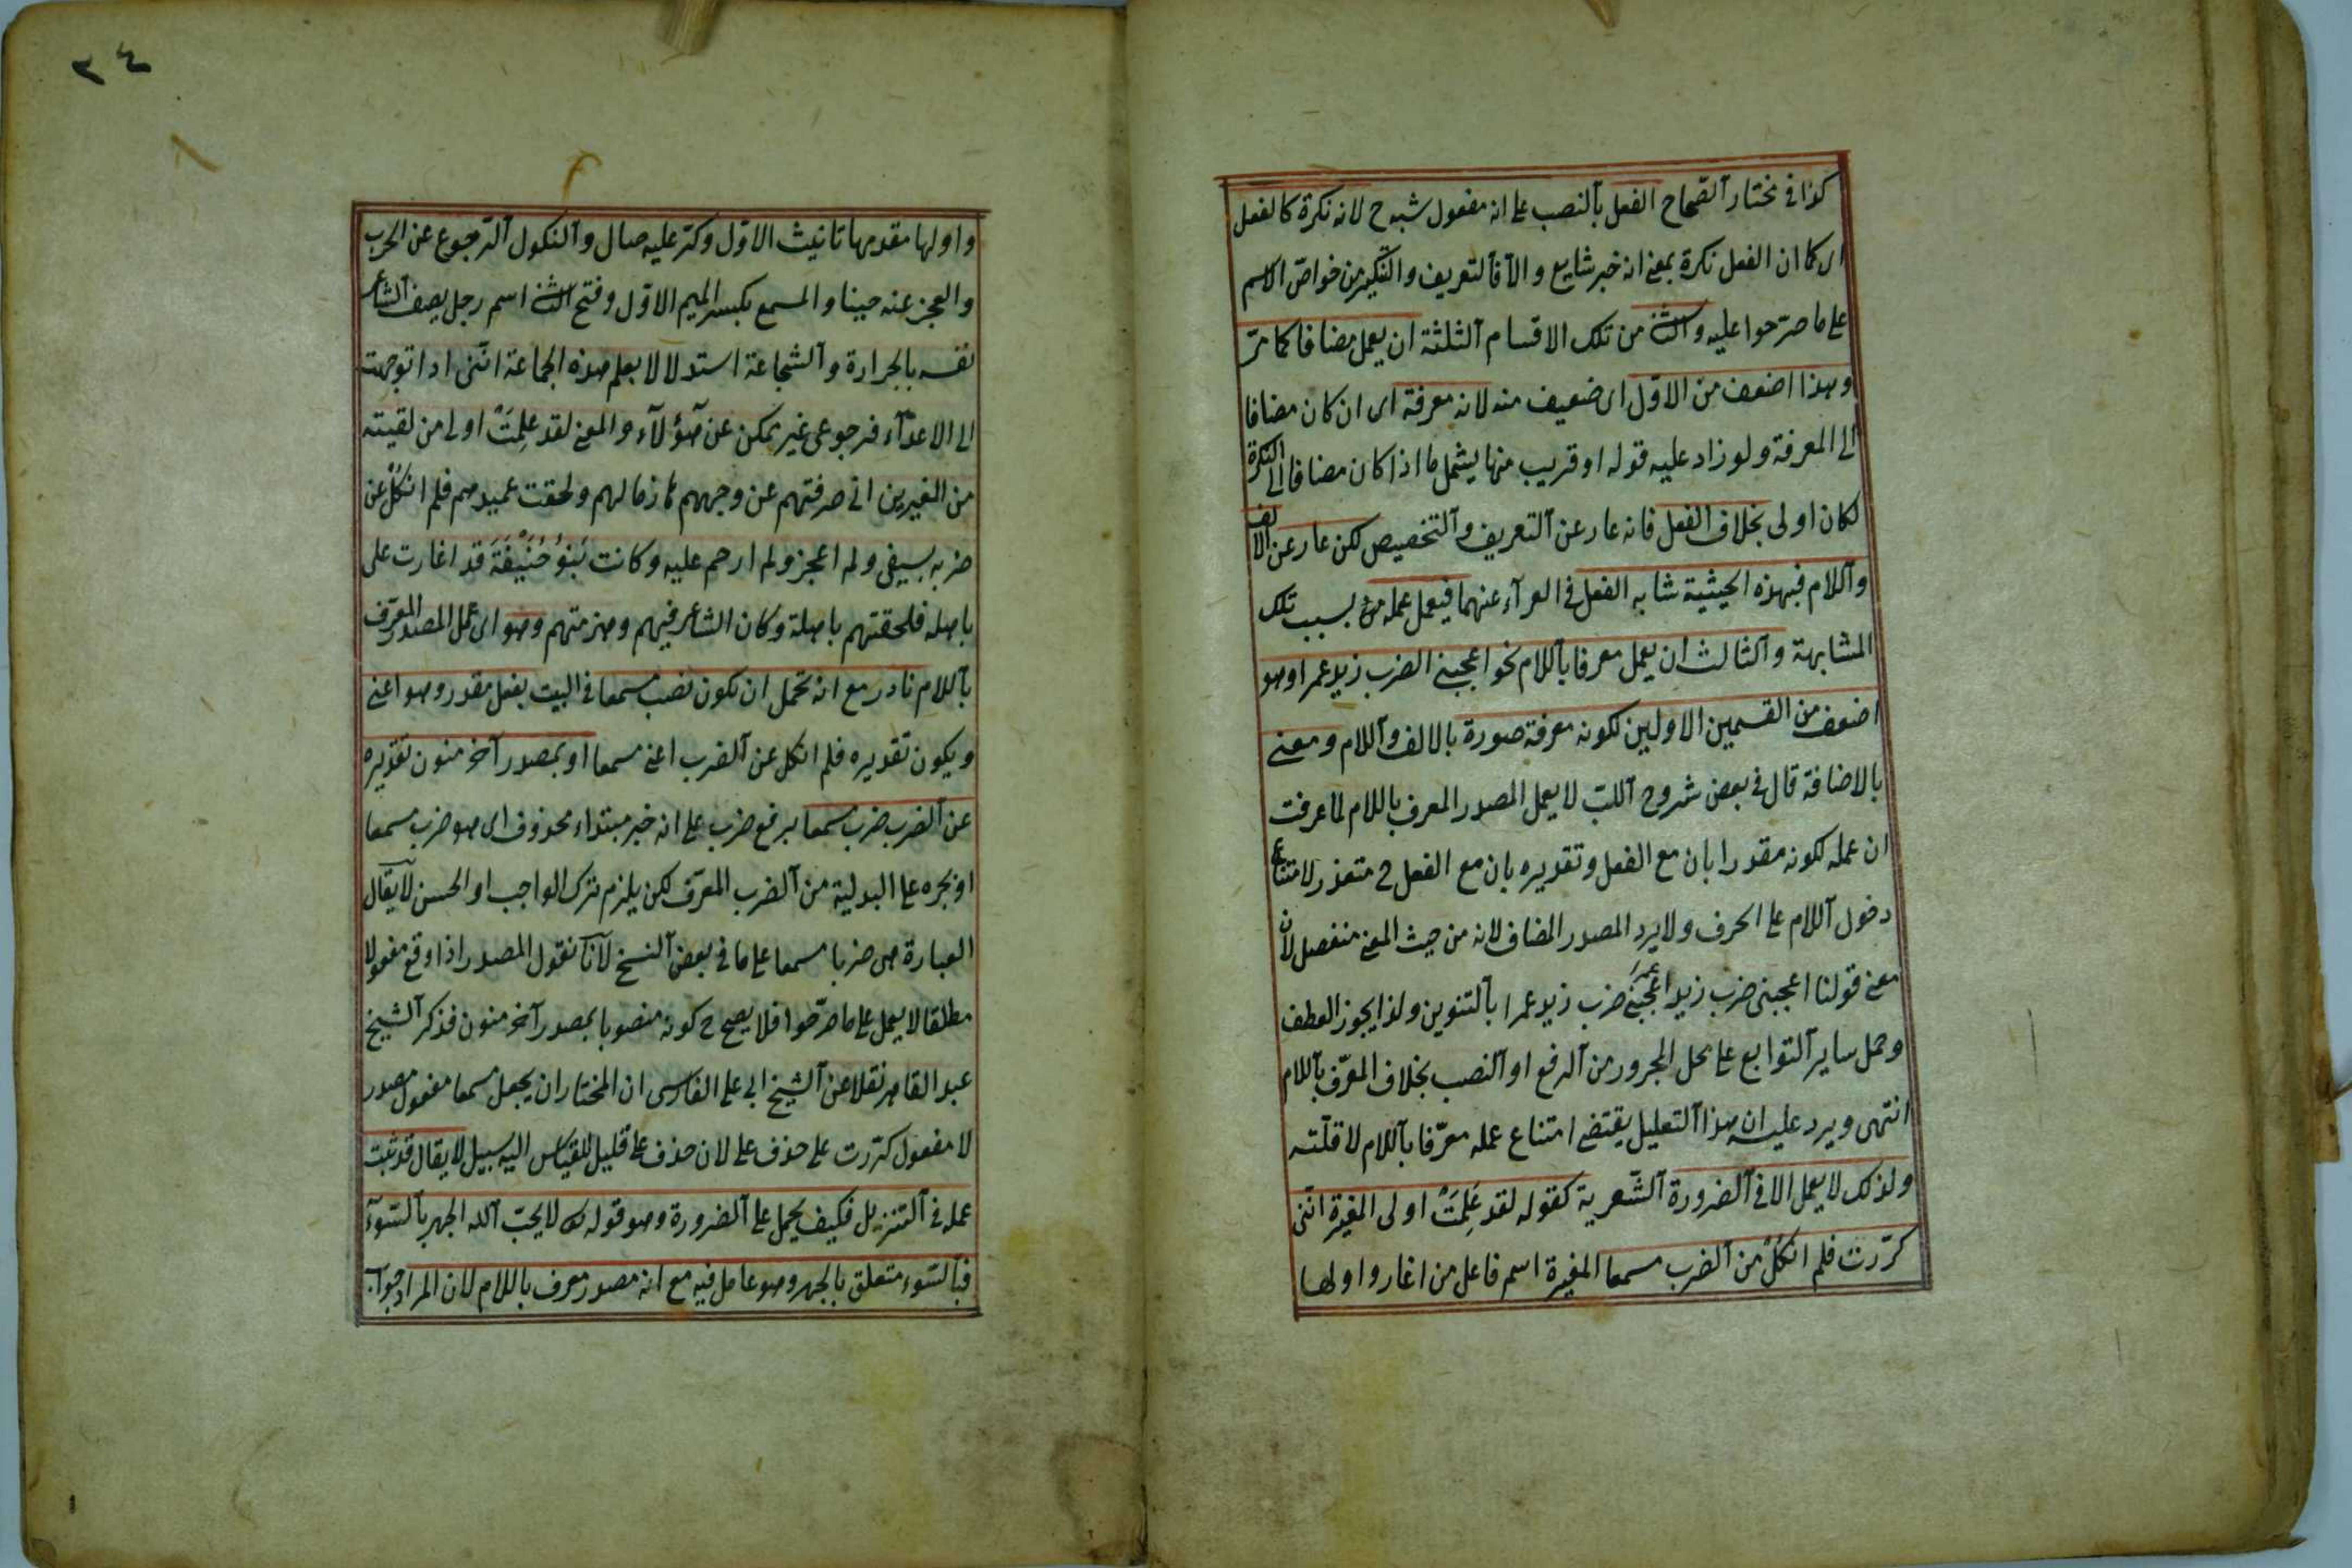 كذا في مختار الصحاح الفعل بالنصب على انه مفعول شبه ح لانه نكرة كالفعل
اى كما ان الفعل نكرة بمعنى انه خبر شايع والا فالتعريف والتنكير من خواص الاسم
على ما صرحوا عليه والثانى من تلك الاقسام الثلثة ان يعمل مضافا كما مر
وهذا اضعف من الاول اى ضعيف منه لانه معرفة اى ان كان مضافا
الى المعرفة ولو زاد عليه قوله او قريب منها يشمل ما اذا كان مضافا الى النكرة
لكان اولى بخلاف الفعل فانه عار عن التعريف والتخصيص لكن عار عن الالف
واللام فبهذه الحيثية شابه الفعل في العرآء عنهما فيعمل عمله بسبب تلك
المشابهة والثالث ان يعمل معرفا باللام نحو اعجبنى الضرب زيد عمرا وهو
اضعف من القسمين الاولين لكونه معرفة صورة بالالف واللام ومعنى
بالاضافة قال في بعض شروح اللب لا يعمل المصدر المعرف باللام لما عرفت
ان عمله لكونه مقدرا بان مع الفعل وتقديره بان مع الفعل ح متعذر لامتناع
دخول اللام على الحرف ولا يرد المصدر المضاف لانه من حيث المعنى منفصل لان
معنى قولنا اعجبنى ضرب زيد عمرا اعجبنى ضرب زيد عمرا بالتنوين ولذا يجوز العطف
وحمل ساير التوابع على محل المجرور من الرفع او النصب بخلاف المعرّف باللام
انتهى ويرد عليه ان هذا التعليل يقتضى امتناع عمله معرّفا باللام لا قلّته
ولذلك لا يعمل الا في الضرورة الشّعرية كقوله لقد عَلِمَتْ اولى المغيرة انّنى
كرّرت فلم انكُلْ من الضرب مسمعا المغيرة اسم فاعل من اغار واولها
٣٤
واولها مقدمها تانيث الاوّل وكرّ عليه صال والنكول الرّجوع عن الحرب
والعجز عنه جبنا والمسمع بكسر الميم الاوّل وفتح الثانى اسم رجل يصف الشاعر
نفسه بالجرارة والشجاعة استدلالا بعلم هذه الجماعة اننى اذا توجهت
الى الاعدآء فرجوعى غير ممكن عن هؤلآء والمعنى لقد عَلِمَتْ اولى من لقيته
من المغيرين انى صرفتهم عن وجههم هازما لهم ولحقت عميدهم فلم انكُلْ عن
ضربه بسيفى ولم اعجز ولم ارحم عليه وكانت بَنُوُ حُنَيْفَةَ قد اغارت على
باهله فلحقتهم باهلة وكان الشاعر فيهم وهزمتهم وهو اى عمل المصدر المعرّف
باللام نادر مع انه تحمل ان يكون نصب مسمعا في البيت بفعل مقدر وهو اعنى
ويكون تقديره فلم انكل عن الضرب اعنى مسمعا او بمصدر آخر منون تقديره
عن الضرب ضرب مسمعا برفع ضرب على انه خبر مبتداء محذوف اى هو ضرب مسمعا
او بجره على البدلية من الضرب المعرّف لكن يلزم ترك الواجب او الحسن لا يقال
العبارة هى ضربا مسمعا على ما في بعض النسخ لانا نقول المصدر اذا وقع مفعولا
مطلقا لا يعمل على ما صرّحوا فلا يصح ح كونه منصوبا بمصدر آخر منون فذكر الشيخ
عبد القاهر نقلا عن الشيخ ابى على الفارسى ان المختار ان يجعل مسمعا مفعول مصدر
لا مفعول كرّرت على حذف على لان حذف على قليل للقياس اليه سبيل لا يقال قد ثبت
عمله في التنزيل فكيف يحمل على الضرورة وهو قوله تعالى لا يحبّ الله الجهر بالسّوء
فبالسّوء متعلق بالجهر وهو عامل فيه مع انه مصدر معرف باللام لان المراد جواب